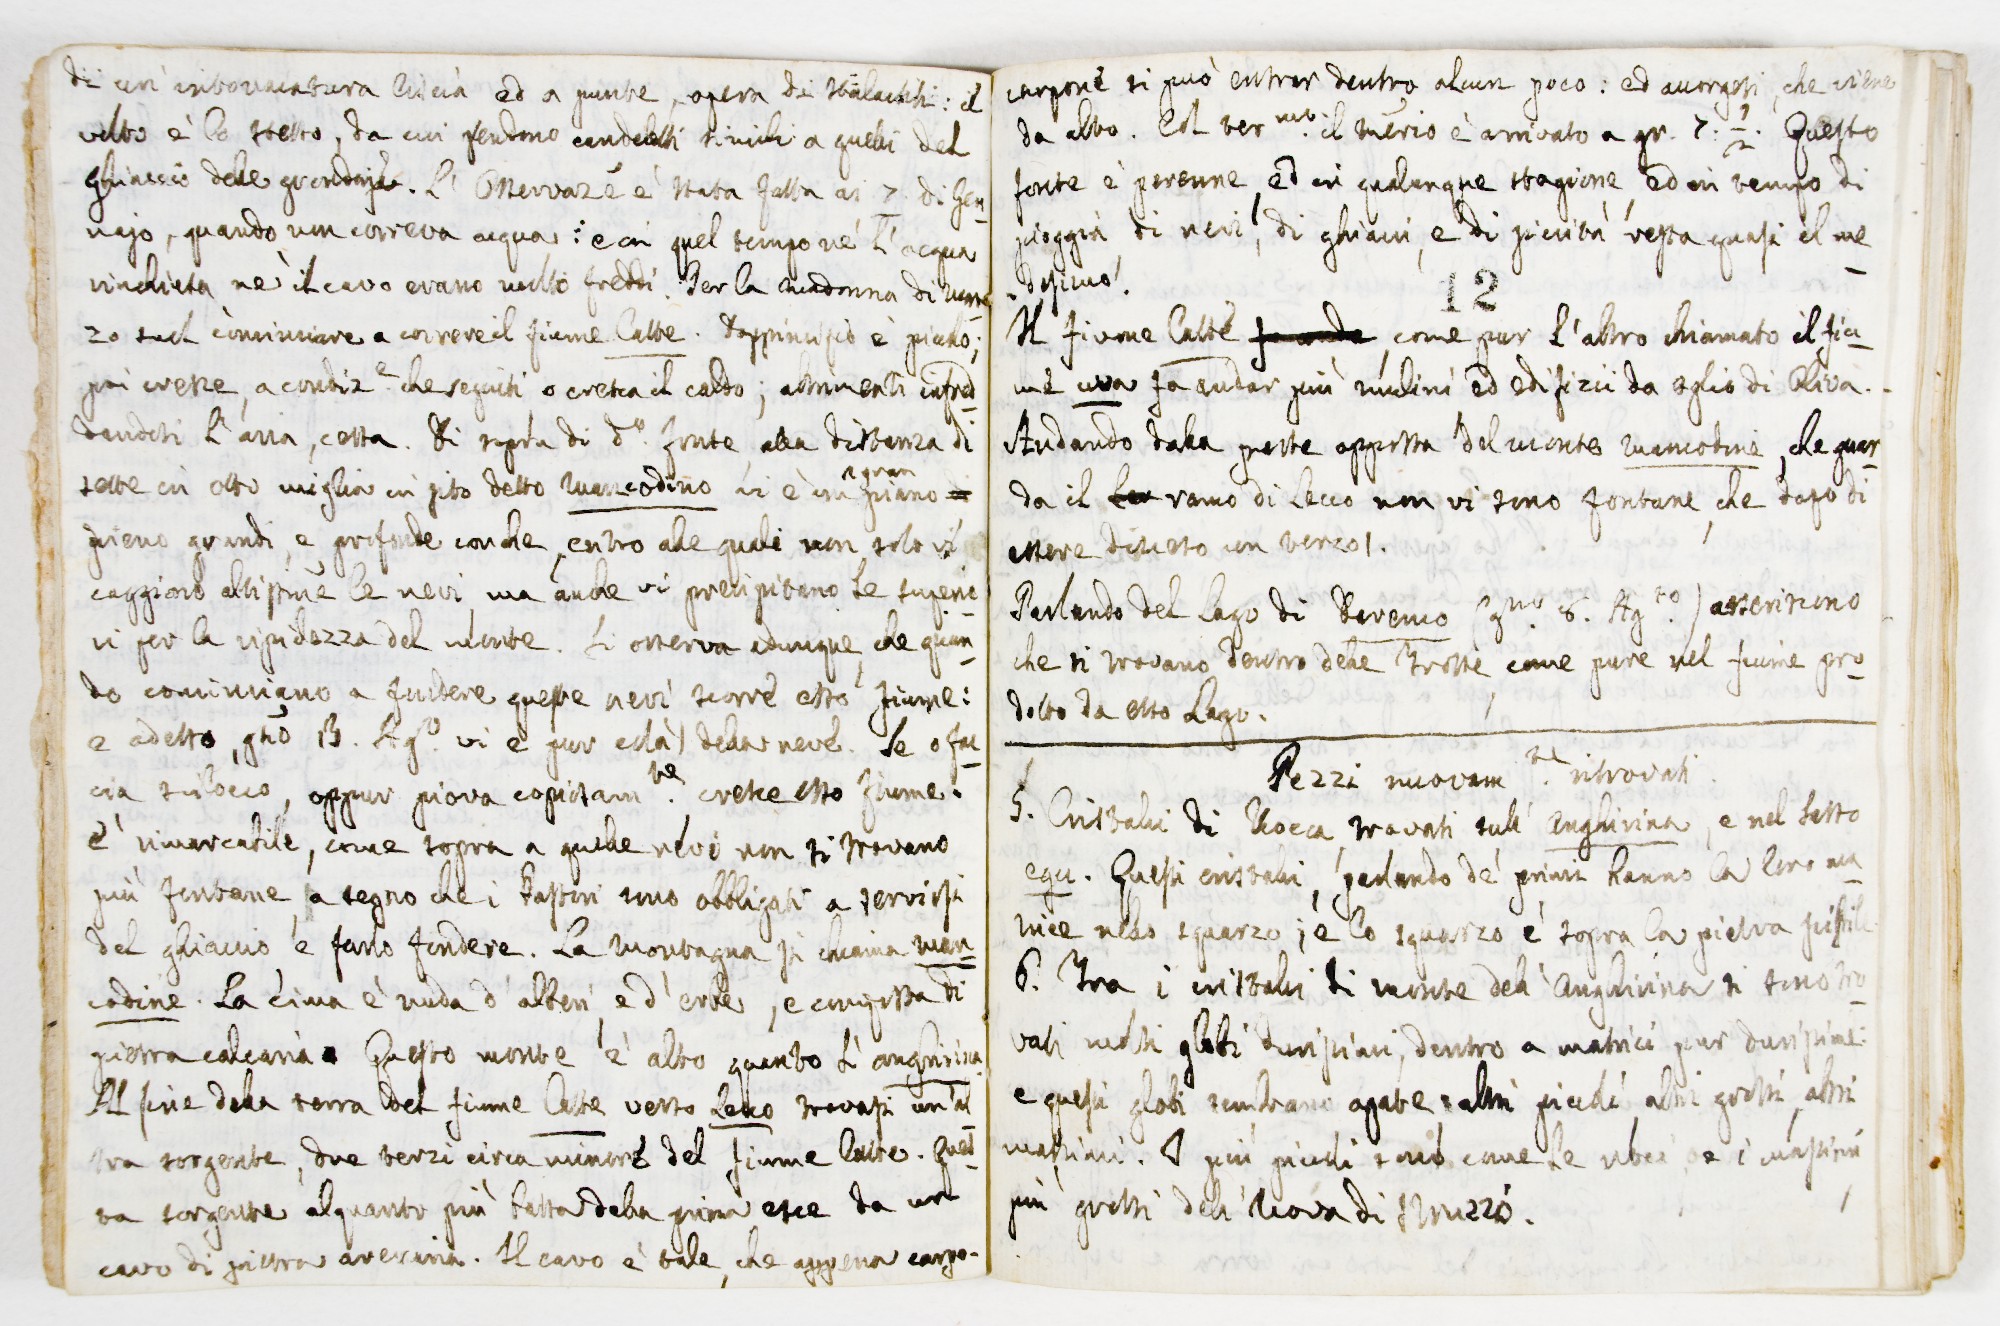 di un' intonacatura liscia ed a punte, opera di stalactiti: il
volto è lo stesso, da cui pendono candelotti simili a quelli del
ghiaccio delle grondaje. L' Osservaz.e è stata fatta ai 7. di Gen=
najo, quando non correva acqua: e in quel tempo nè l'acqua
rinchiusa nè il cavo erano molto freddi. Per la Madonna di Mar
zo suol cominciare a correre il fiume Latte. Dapprincipio è picciolo;
poi cresce, a condiz.e che seguiti o cresca il caldo; altrimenti infred=
dandosi l'aria, cessa. Di sopra di d.o fonte alla distanza di
sette in otto miglia in sito detto Mancodino vi è un gran piano
pieno grandi, e profonde conche, entro alle quali non solo vi
caggiono altissime le nevi, ma anche vi precipitano le superio=
ri per la ripidezza del monte. Si osserva adunque, che quan=
do cominciano a fondere queste nevi scorre esso fiume:
e adesso, gno 13. Ago. vi è pur colà della neve. Se o fac=
cia scilocco, oppur piova copiosam.te cresce esso fiume.
È rimarcabile, come sopra a quelle nevi non si trovano
più fontane, a segno che i Pastori sono obbligati a servirsi
del ghiaccio e farlo fondere. La montagna si chiama Man=
codine. La cima è nuda d'alberi, e d'erbe, e composta di
pietra calcaria. Questo monte è alto quanto l'anghirina.
Al fine della terra del fiume Latte verso Lecco trovasi un'al=
tra sorgente, due terzi circa minore del fiume Latte. Ques=
ta sorgente alquanto più bassa della prima esce da un
cavo di pietra arenaria. Il cavo è tale, che appena carpo-
carpone si può entrar dentro alcun poco: ed accorgesi, che viene
da alto. Col ter.mtro il merio è arrivato a gr. 7. 1/2. Questo
fonte è perenne, ed in qualunque stagione, ed in tempo di
pioggia di nevi, di ghiacci, e di siccità resta quasi il me=
desimo.
12
Il fiume Latte come pur l'altro chiamato il fiu=
me uva fa andar più mulini ed edifizii da oglio di Oliva.
Andando dalla parte opposta del monte Mancodine, che guar=
da il ramo di Lecco non vi sono fontane, che dopo di
essere disceso un terzo.
Parlando del Lago di Varenno (gno. 6. Ag.to) asseriscono
che si trovano dentro delle Trotte come pure nel fiume pro=
dotto da esso Lago.
Pezzi nuovam.te ritrovati.
5. Cristalli di Rocca trovati sull' anghirina, e nel sasso
equi. Questi cristalli, parlando de' primi hanno la loro ma=
trice nello squarzo; e lo squarzo è sopra la pietra fissile.
6. Tra i cristalli di monte dell' Anghirina si sono tro=
vati molti globi durissimi, dentro a matrici pur durissime:
e questi globi sembrano agate: altri piccoli, altri grossi, altri
massimi. I più piccoli sono come le noci, e i massimi
più grossi dell' Uova di struzzo.